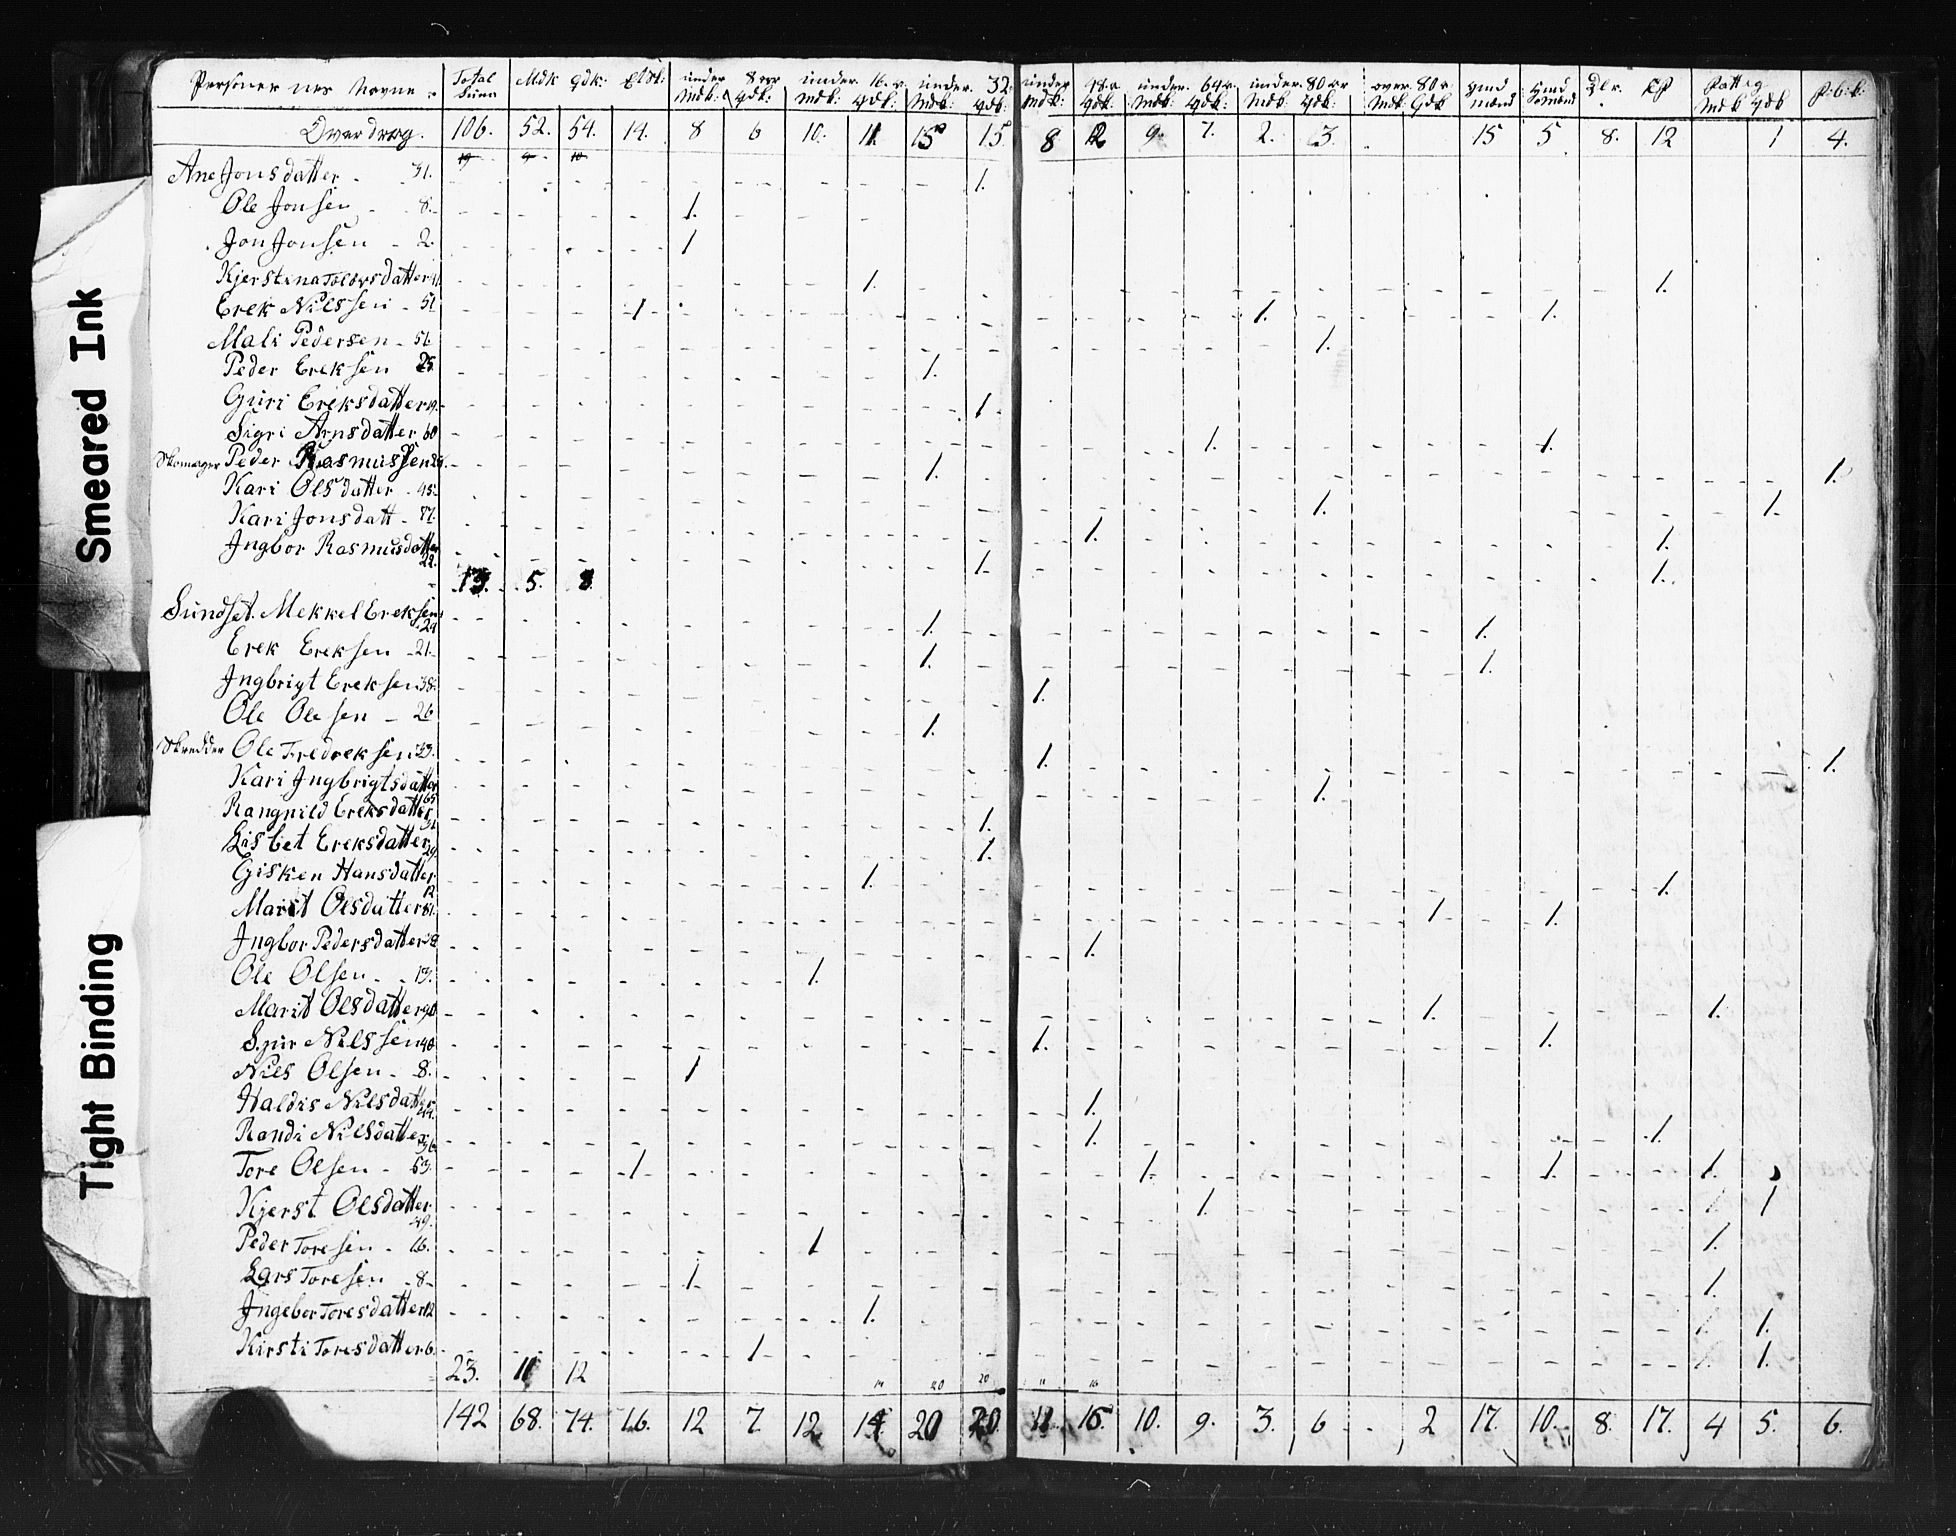 Smeared Ink
Tight Binding
Personernes Navne : Total Suma Mdk qdk: under 8 aar Mdk: qdk: under 16 Mdk: qdk: under 32 Mdk: qdk: under 48 Mdk: qdk: under 64 Mdk: qdk: under 80 aar Mdk: qdk: over 80 Mdk: qdk Mdk qdk
Overdrag. 106. 52. 54. 14. 8 6 10. 11 15 15. 8 12 9. 7. 2. 3. 15 5 8. 12 1 4.
19 9 10
Ane Jonsdatter - 31. 1.
Ole Jonsen - 8. 1.
Jon Jonsen - 2. 1
Kjerstina Tolovsdatter 1. 1.
Erek Nilssen - 51 1 1. 1.
Mali Pedersen - 51 1.
Peder Ereksen 25 1.
Guri Ereksdatter 19. 1.
Sigri Arnsdatter 60 1. 1.
Skomager Peder Rasmussen 26. 1. 1.
Kari Olsdatter - 45. 1. 1.
Kari Jonsdatt - 1. 1.
Ingbor Rasmusdatter 22. 1. 1.
13. 5. 8
Sundset. Mekkel Ereksen 29 1. 1.
Erek Ereksen - 21 1. 1.
Ingbrigt Ereksen 38. 1.
Ole Olesen - 26 1.
Skredder Ole Fredreksen 33. 1. 1.
Kari Ingbrigtsdatter 65 1.
Rangnild Ereksdatter 31 1.
Lisbet Ereksdatter 29. 1.
Gisken Hansdatter 12 1. 1.
Marit Olsdatter 81. 1. 1.
Ingbor Pedersdatter 1.
Ole Olsen - 13. 1.
Marit Olsdatter 90 1. 1.
Nilssen 40 1. 1.
Nils Olsen - 8. 1
Haldis Nilsdatter 44. 1.
Randi Nilsdatter 36 1. 1.
Tore Olsen - 53. 1 1. 1. 1.
Kjerst Olsdatter 49. 1. 1
Peder Toresen - 16. 1 1.
Lars Toresen - 8 - 1. 1.
Ingebor Toresdatter 12 1. 1.
Kirsti Toresdatter 6. 1 1.
23. 11 12
142 68. 74. 16. 12 7. 12. 14 20 20. 11 15. 10. 9. 3. 6 2 17. 10. 8. 17. 4 5. 6.